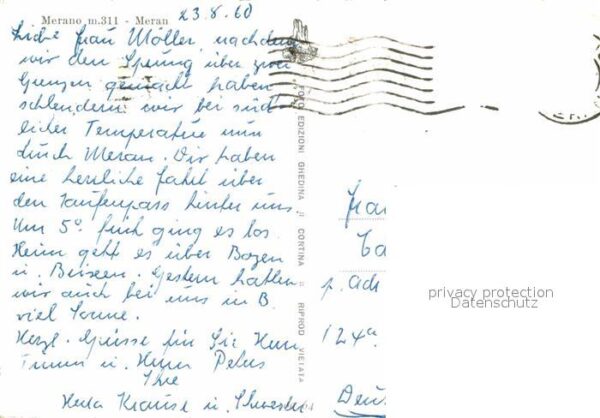 Merano m.311 - Meran
23.8.60
Liebe Frau Möller, nachdem
wir den Sprung über zwei
Grenzen gemacht haben
schlendern wir bei süd-
licher Temperatur nun
durch Meran. Wir haben
eine herrliche Fahrt über
den Jaufenpass hinter uns.
Um 5° früh ging es los.
Heim geht es über Bozen
u. Brixen. Gestern hatten
wir auch bei uns in B.
viel Sonne.
Herzl. Grüsse für Sie Herrn
u. Herrn
Ihre
Herta Krause u. Schwester
FOTO EDIZIONI GHEDINA CORTINA RIPROD. VIETATA
Frau
p. Adr
124a
Deu
privacy protection
Datenschutz